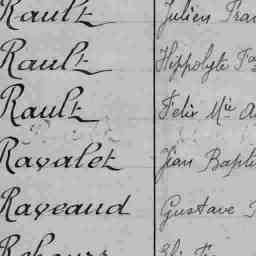 Rault Julien
Rault Hippolyte
Rault Felix Mie
Ravalet Jean Bapti
Raveaud Gustave